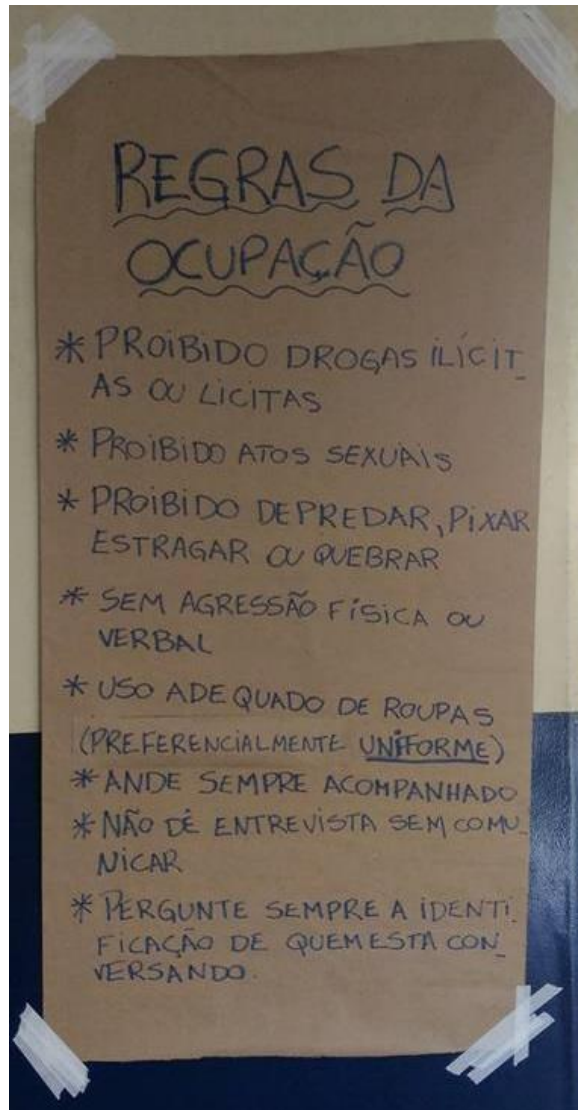 REGRAS DA
OCUPAÇÃO
* PROIBIDO DROGAS ILÍCIT_
AS OU LICITAS
* PROIBIDO ATOS SEXUAIS
* PROIBIDO DEPREDAR, PIXAR
ESTRAGAR OU QUEBRAR
* SEM AGRESSÃO FÍSICA OU
VERBAL
* USO ADEQUADO DE ROUPAS
(PREFERENCIALMENTE UNIFORME)
* ANDE SEMPRE ACOMPANHADO
* NÃO DÊ ENTREVISTA SEM COMU_
NICAR
* PERGUNTE SEMPRE A IDENTI_
FICAÇÃO DE QUEM ESTA CON_
VERSANDO.